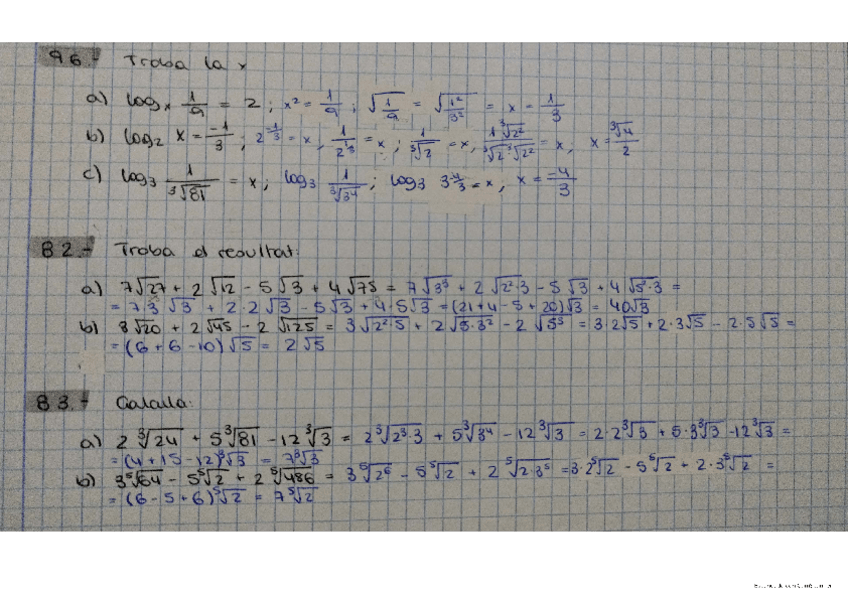 96.- Troba la x
a) log_x 1/9 = 2 ; x² = 1/9 ; √(1/9) = √(1²/3²) = x = 1/3
b) log₂ x = -1/3 ; 2^(-1/3) = x , 1/2^(1/3) = x ; 1/∛2 = x , 1∛2²/∛2 ∛2² = x , x = ∛4/2
c) log₃ 1/∛81 = x ; log₃ 1/∛3⁴ ; log₃ 3^(-4/3) = x , x = -4/3
82.- Troba el resultat:
a) 7√27 + 2√12 - 5√3 + 4√75 = 7√3³ + 2√2²·3 - 5√3 + 4√5²·3 =
= 7·3√3 + 2·2√3 - 5√3 + 4·5√3 = (21+4-5+20)√3 = 40√3
b) 3√20 + 2√45 - 2√125 = 3√2²·5 + 2√5·3² - 2√5³ = 3·2√5 + 2·3√5 - 2·5√5 =
= (6+6-10)√5 = 2√5
83.- Calcula:
a) 2∛24 + 5∛81 - 12∛3 = 2∛2³·3 + 5∛3⁴ - 12∛3 = 2·2∛3 + 5·3∛3 - 12∛3 =
= (4+15-12)∛3 = 7∛3
b) 3⁵√64 - 5⁵√2 + 2⁵√486 = 3⁵√2⁶ - 5⁵√2 + 2⁵√2·3⁵ = 3·2⁵√2 - 5⁵√2 + 2·3⁵√2 =
= (6-5+6)⁵√2 = 7⁵√2